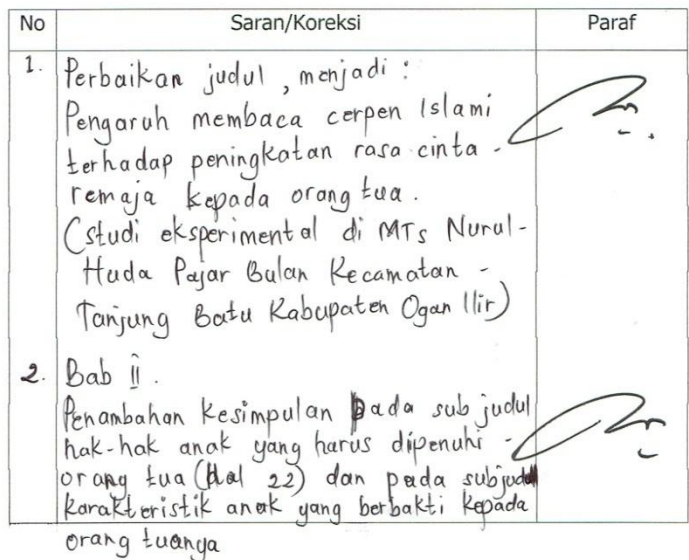 No Saran/Koreksi Paraf
1. Perbaikan judul, menjadi :
Pengaruh membaca cerpen Islami
terhadap peningkatan rasa cinta -
remaja kepada orang tua.
(studi eksperimental di MTs Nurul-
Huda Pajar Bulan Kecamatan -
Tanjung Batu Kabupaten Ogan Ilir)
2. Bab ii.
Penambahan kesimpulan pada sub judul
hak-hak anak yang harus dipenuhi -
orang tua (Hal 22) dan pada subjudul
karakteristik anak yang berbakti kepada
orang tuanya